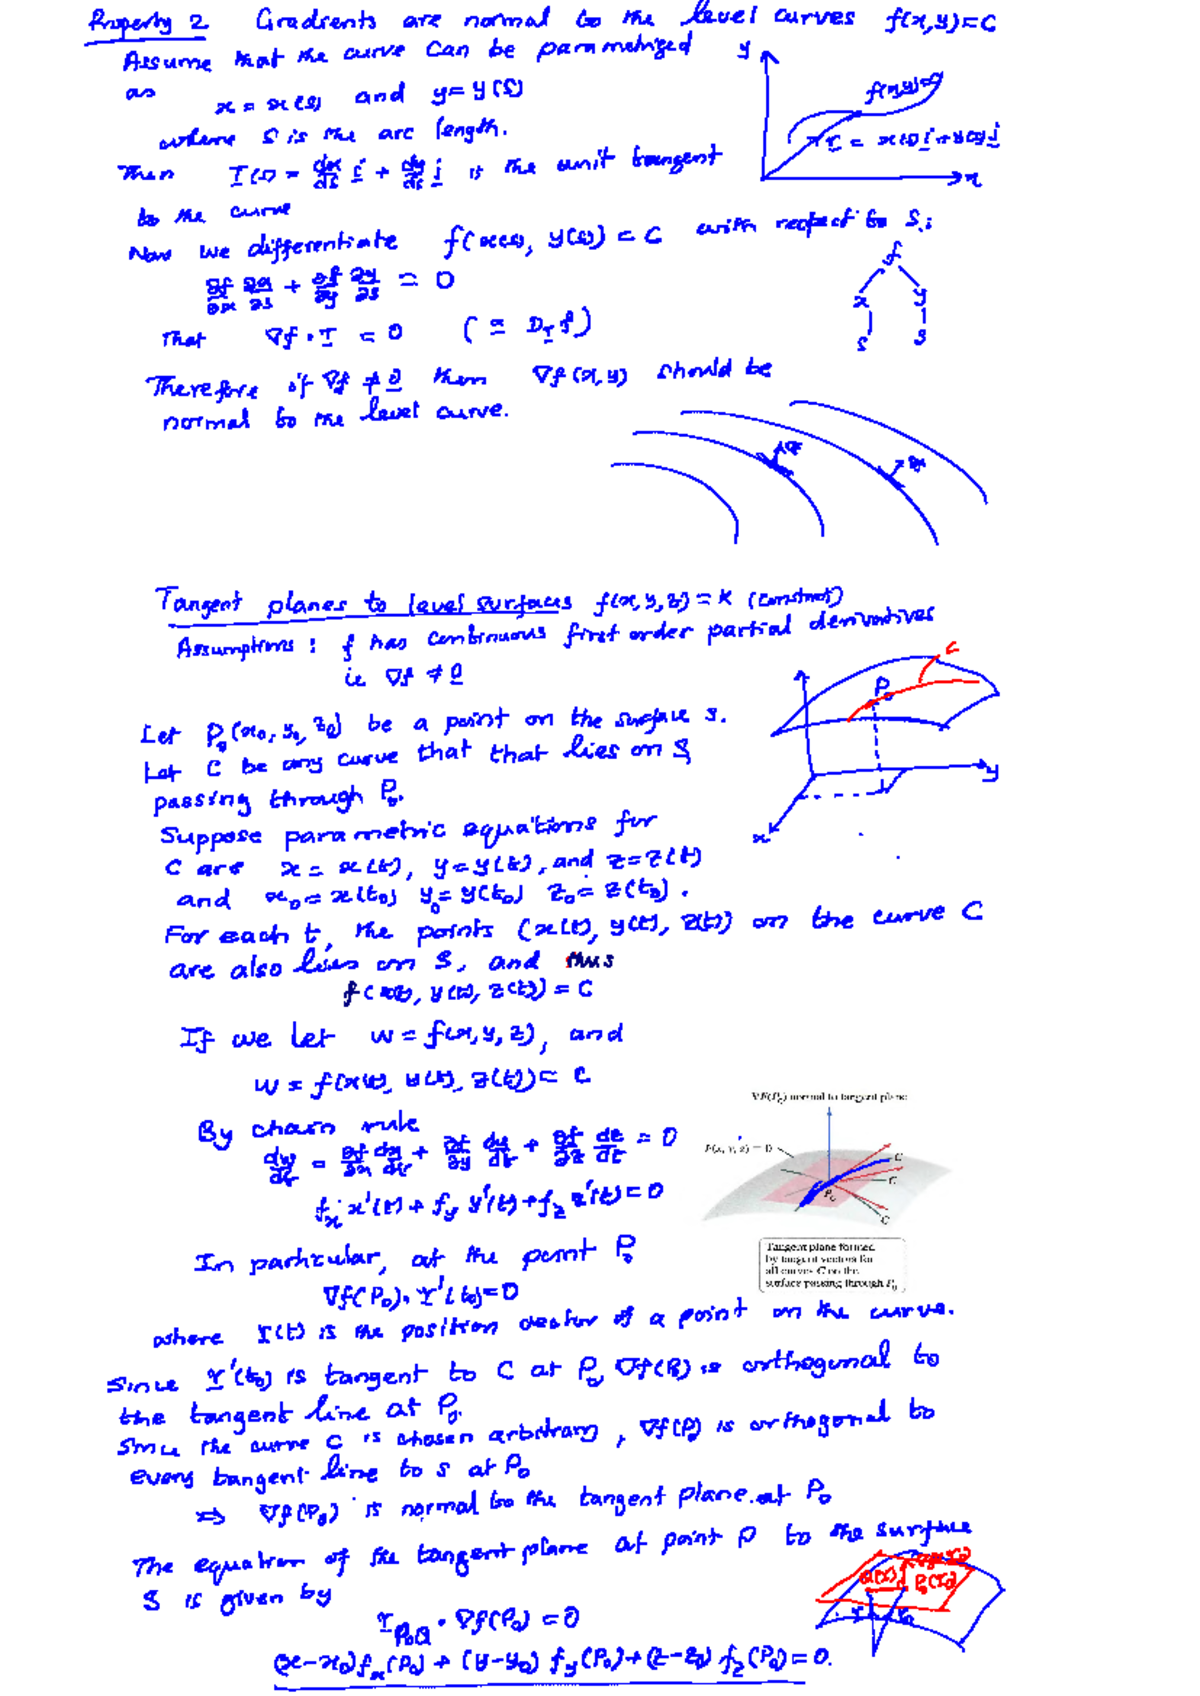 Property 2 Gradients are normal to the level curves f(x,y)=C
Assume that the curve can be parametrized
as x = x(s) and y = y(s)
where s is the arc length.
f(x,y)=C
r = x(s)i + y(s)j
y
x
Then T(s) = dx/ds i + dy/ds j is the unit tangent
to the curve
Now we differentiate f(x(s), y(s)) = C with respect to s.
∂f/∂x ∂x/∂s + ∂f/∂y ∂y/∂s = 0
f
x y
s s
That ∇f · T = 0 ( = D_T f )
Therefore if ∇f ≠ 0 then ∇f(x,y) should be
normal to the level curve.
∇f
∇f
Tangent planes to level surfaces f(x,y,z) = K (constant)
Assumptions : f has continuous first order partial derivatives
ie ∇f ≠ 0
C
P₀
y
x
Let P₀(x₀, y₀, z₀) be a point on the surface S.
Let C be any curve that that lies on S
passing through P₀.
Suppose parametric equations for
C are x = x(t), y = y(t), and z = z(t)
and x₀ = x(t₀) y₀ = y(t₀) z₀ = z(t₀).
For each t, the points (x(t), y(t), z(t)) on the curve C
are also lies on S, and thus
f(x(t), y(t), z(t)) = C
If we let w = f(x,y,z), and
w = f(x(t), y(t), z(t)) = C
By chain rule
dw/dt = ∂f/∂x dx/dt + ∂f/∂y dy/dt + ∂f/∂z dz/dt = 0
f_x x'(t) + f_y y'(t) + f_z z'(t) = 0
∇F(P₀) normal to tangent plane
F(x, y, z) = 0
C
C
C
P₀
Tangent plane formed
by tangent vectors for
all curves C on the
surface passing through P₀
In particular, at the point P₀
∇f(P₀) · r'(t₀) = 0
where r(t) is the position vector of a point on the curve.
Since r'(t₀) is tangent to C at P₀, ∇f(P₀) is orthogonal to
the tangent line at P₀.
Since the curve C is chosen arbitrary, ∇f(P₀) is orthogonal to
every tangent line to S at P₀
⇒ ∇f(P₀) is normal to the tangent plane at P₀
The equation of the tangent plane at point P to the surface
S is given by
r_P₀Q · ∇f(P₀) = 0
(x-x₀)f_x(P₀) + (y-y₀) f_y(P₀) + (z-z₀) f_z(P₀) = 0.